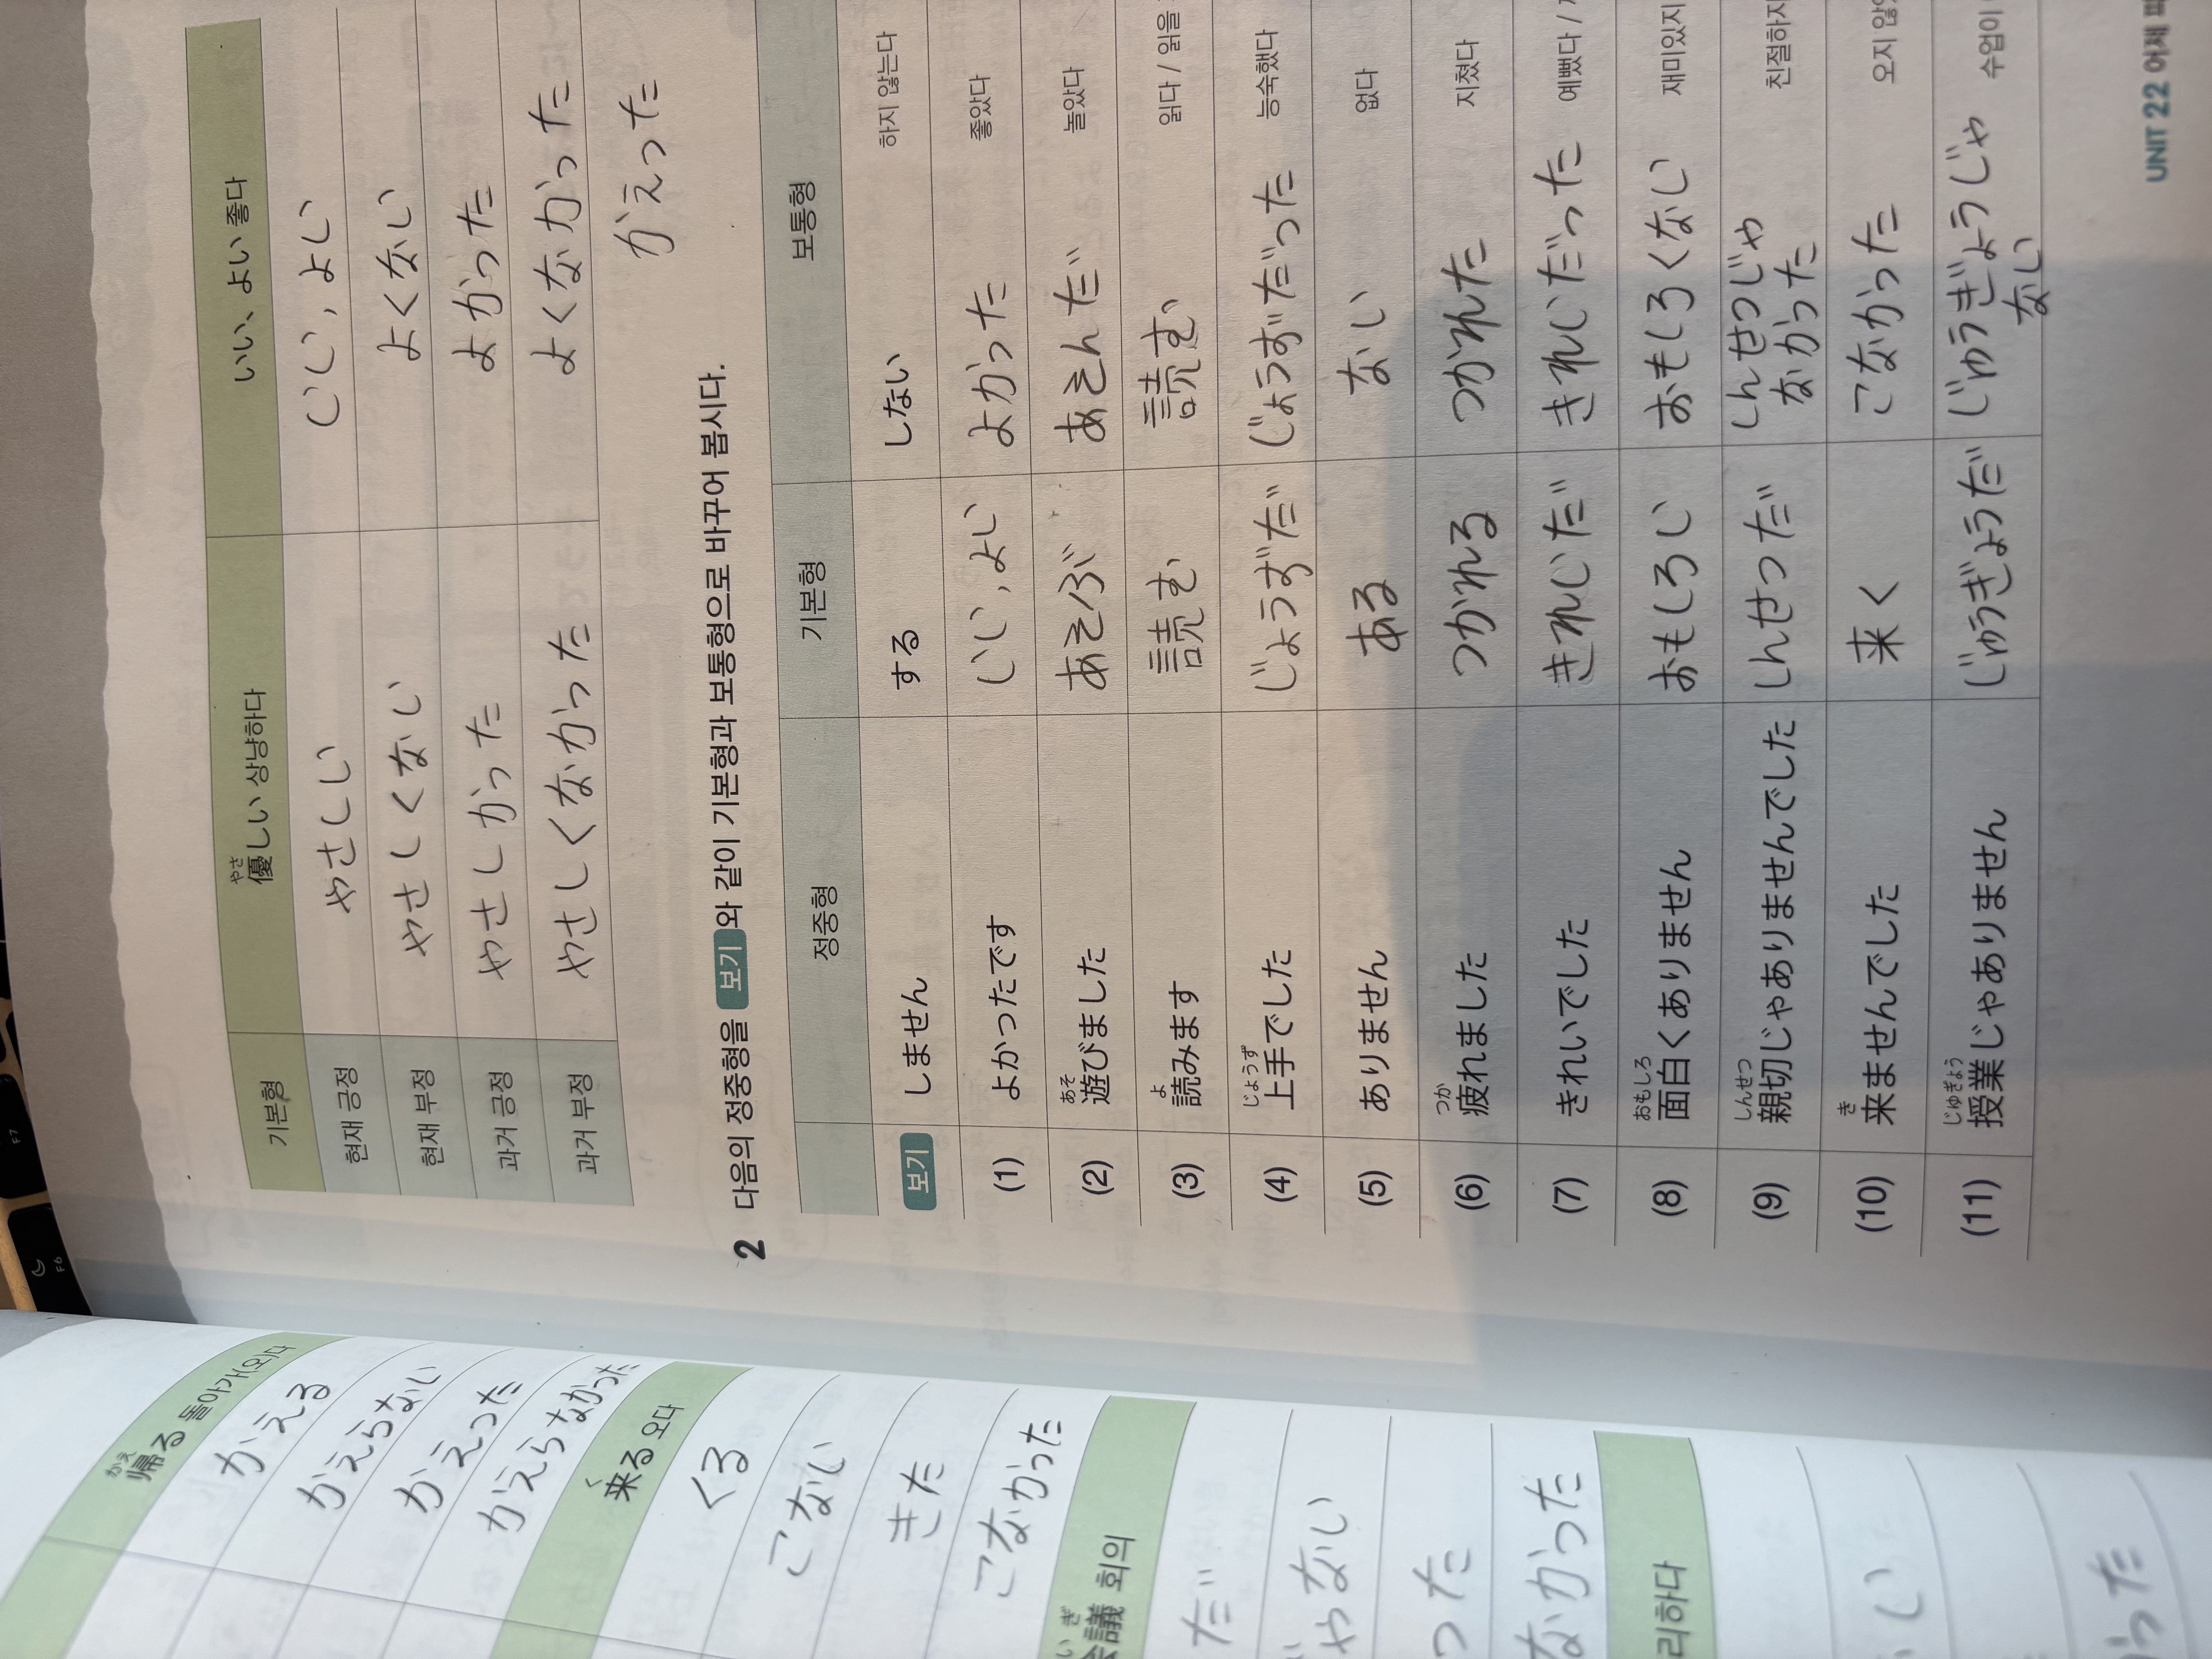 優しい 상냥하다
やさ
いい、よい 좋다
기본형
현재 긍정
やさしい
いい, よい
현재 부정
やさしくない
よくない
과거 긍정
やさしかった
よかった
과거 부정
やさしくなかった
よくなかった
かえった
2 다음의 정중형을 보기와 같이 기본형과 보통형으로 바꾸어 봅시다.
정중형
기본형
보통형
보기
しません
する
しない
하지 않는다
(1)
よかったです
いい, よい
よかった
좋았다
(2)
あそ
遊びました
あそぶ
あそんだ
놀았다
(3)
よ
読みます
読む
読む
읽다 / 읽을
(4)
じょうず
上手でした
じょうずだ
じょうずだった
능숙했다
(5)
ありません
ある
ない
없다
(6)
つか
疲れました
つかれる
つかれた
지쳤다
(7)
きれいでした
きれいだ
きれいだった
예뻤다 /
(8)
おもしろ
面白くありません
おもしろい
おもしろくない
재미있지
(9)
しんせつ
親切じゃありませんでした
しんせつだ
しんせつじゃ
なかった
친절하지
(10)
き
来ませんでした
来く
こなかった
오지 않았
(11)
じゅぎょう
授業じゃありません
じゅうぎょうだ
じゅうぎょうじゃ
ない
수업이
UNIT 22 어제
かえ
帰る 돌아가(오)다
かえる
かえらない
かえった
かえらなかった
く
来る 오다
くる
こない
きた
こなかった
いぎ
会議 회의
だ
ゃない
った
なかった
리하다
い
った